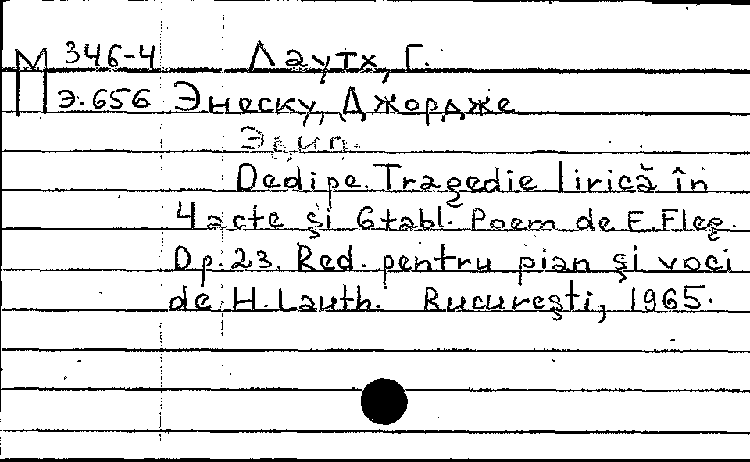 М 346-4 Лаутх, Г.
П Э.656 Энеску, Джордже
Эдип.
Oedipe. Tragedie lirică în
4 acte și 6 tabl. Poem de E. Fleg.
Op. 23. Red. pentru pian și voci
de H. Lauth. București, 1965.